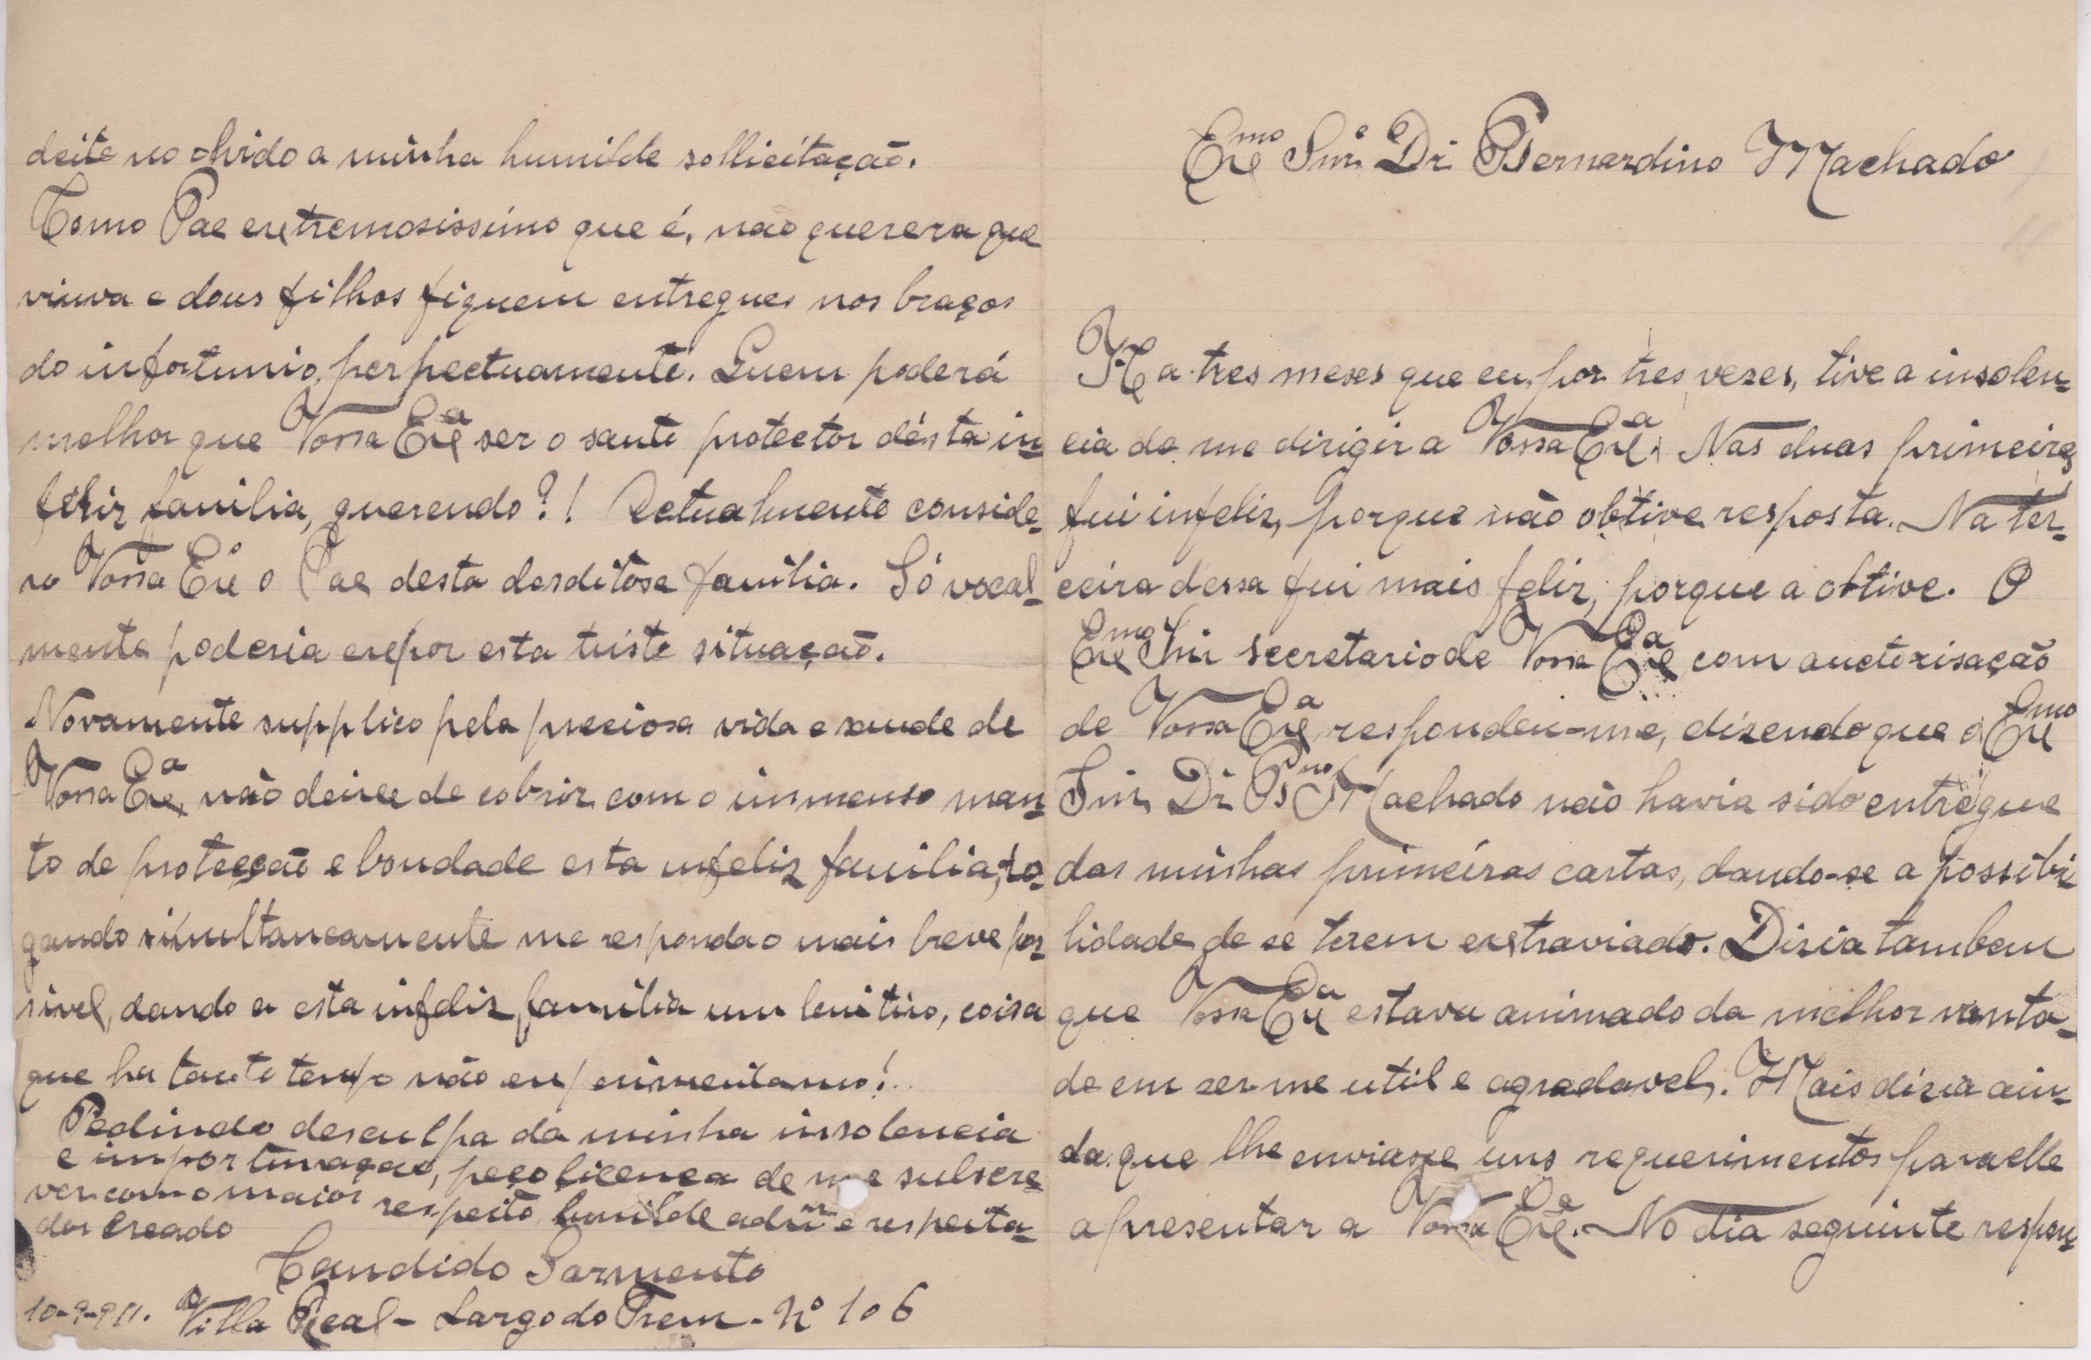 Exmo Snr. Dr. Bernardino Machado
Ha tres meses que eu, por tres vezes, tive a insolen-
cia de me dirigir a Vossa Exa. Nas duas primeiras
fui infeliz, porque não obtive resposta. Na ter-
ceira dessa fui mais feliz, porque a obtive. O
Exmo Snr secretario de Vossa Exa com auctorisação
de Vossa Exa, respondeu-me, dizendo que o Exmo
Snr. Dr. Bno Machado não havia sido entregue
das minhas primeiras cartas, dando-se a possibi
lidade de se terem extraviado. Dizia tambem
que Vossa Exa estava animado da melhor vonta-
de em ser-me util e agradavel. Mais dizia ain-
da que lhe enviasse uns requerimentos para elle
apresentar a Vossa Exa. No dia seguinte respon-
deite no olvido a minha humilde sollicitação.
Como Pae extremosissimo que é, não querera que
viuva e dous filhos fiquem entregues nos braços
do infortunio, perpectuamente. Quem poderá
melhor que Vossa Exa ser o santo protector désta in-
feliz familia, querendo?! Actualmente conside-
ro Vossa Exa o Pae desta desditosa familia. Só vocal-
mente poderia expor esta triste situação.
Novamente supplico pela preciosa vida e saude de
Vossa Exa, não deixe de cobrir com o immenso man-
to de protecção e bondade esta infeliz familia, ro-
gando simultaneamente me responda o mais breve pos-
sivel, dando a esta infeliz familia um lenitivo, coisa
que ha tanto tempo não experimentamo!
Pedindo desculpa da minha insolencia
e importunação, peço licença de me subscre-
ver com o maior respeito humilde admr e respeita-
dor creado
Candido Sarmento
10-9-911. Villa Real - Largo do Trem - No 106